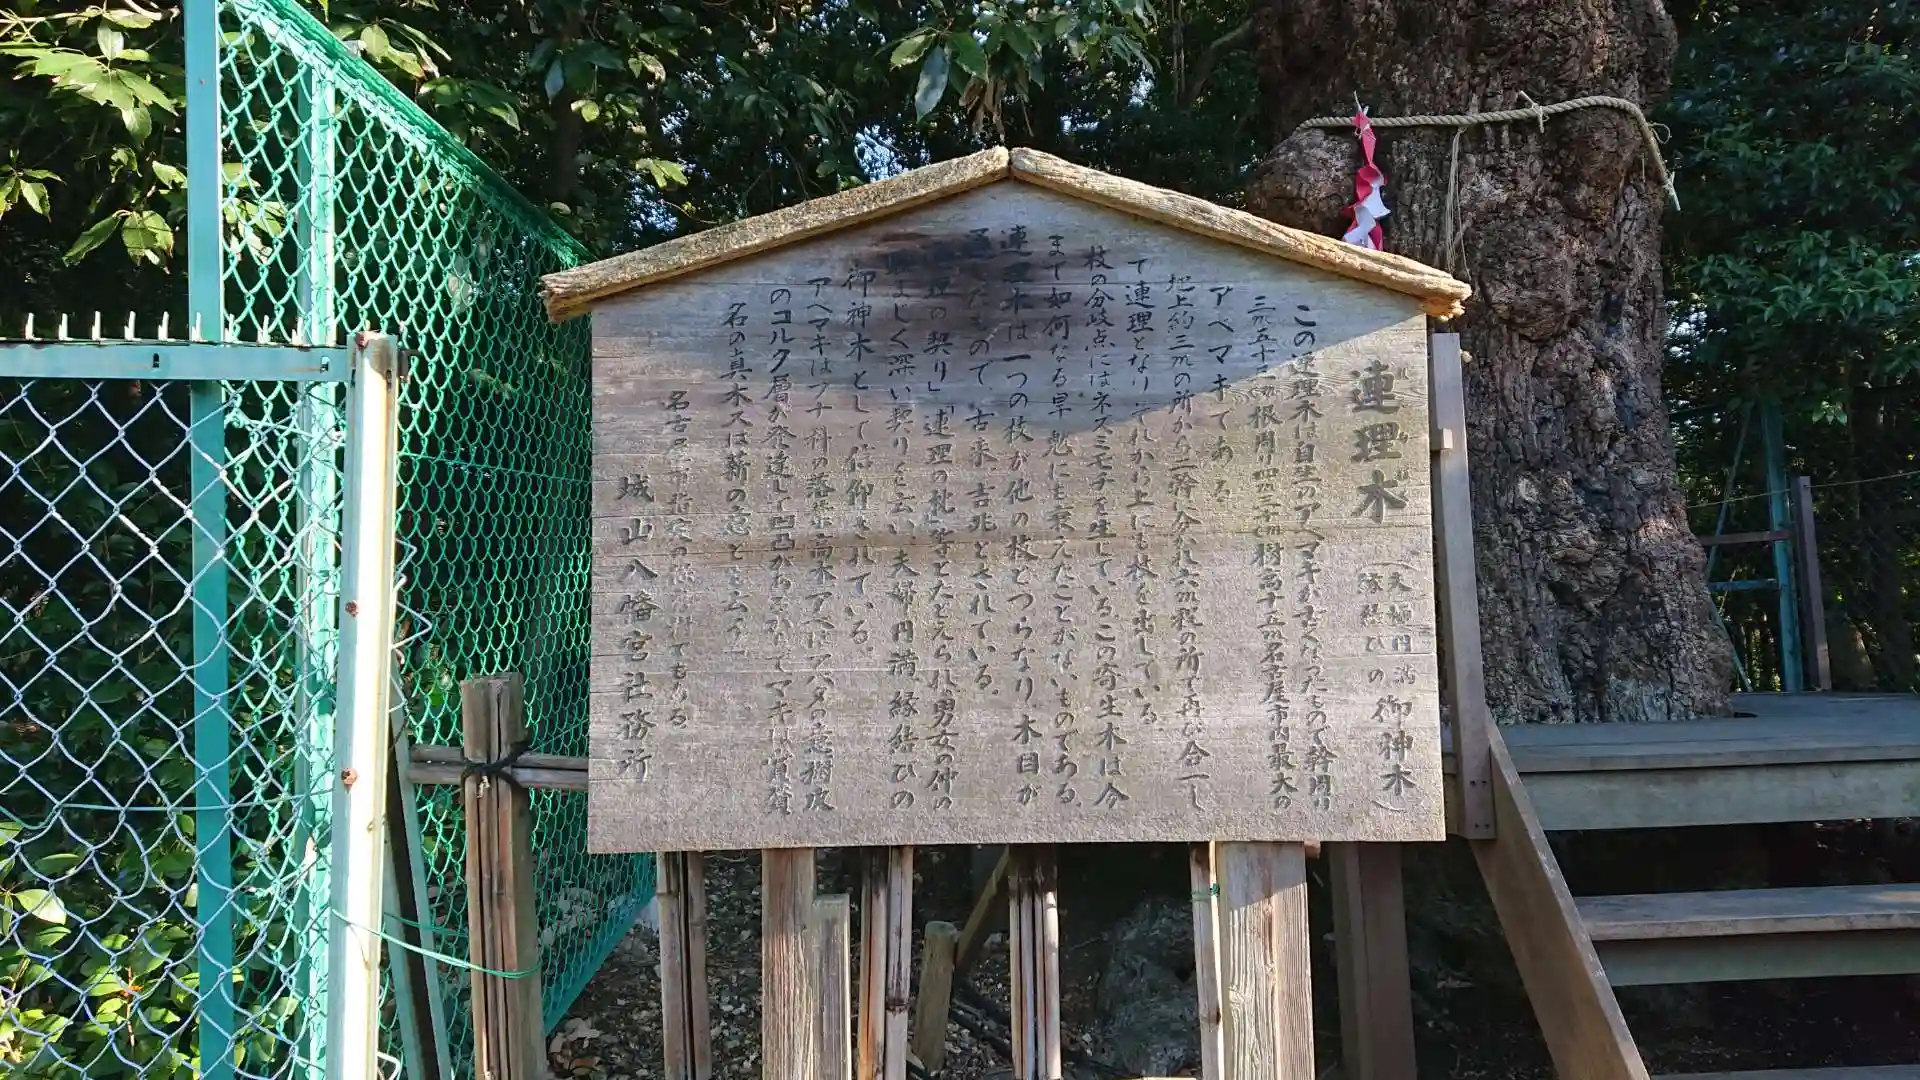 連理木
(夫婦円満
縁結びの御神木)
この連理木は自生のアベマキが古くなったもので幹周り
三米五十 根周り四米三十 樹高十五米名古屋市内最大の
アベマキである。
地上約三米の所から二幹に分かれ六米程の所で再び合一し
て連理となりそれから上にも枝を出している。
枝の分岐点にはネズミモチを生しているこの寄生木は今
まで如何なる旱魃にも衰えたことがないものである。
連理木は一つの枝が他の枝とつらなり木目が
通じたもので、古来、吉兆とされている。
理の契り」「連理の枝」などとたとえられ男女の仲の
睦まじく深い契りを云い、夫婦円満、縁結びの
御神木として信仰されている。
アベマキはブナ科の落葉高木アベはアバタの意樹皮
のコルク層が発達して凹凸がある マキは賞賛
名の真木又は薪の意とも云う。
名古屋市指定の保存 である
城山八幡宮社務所